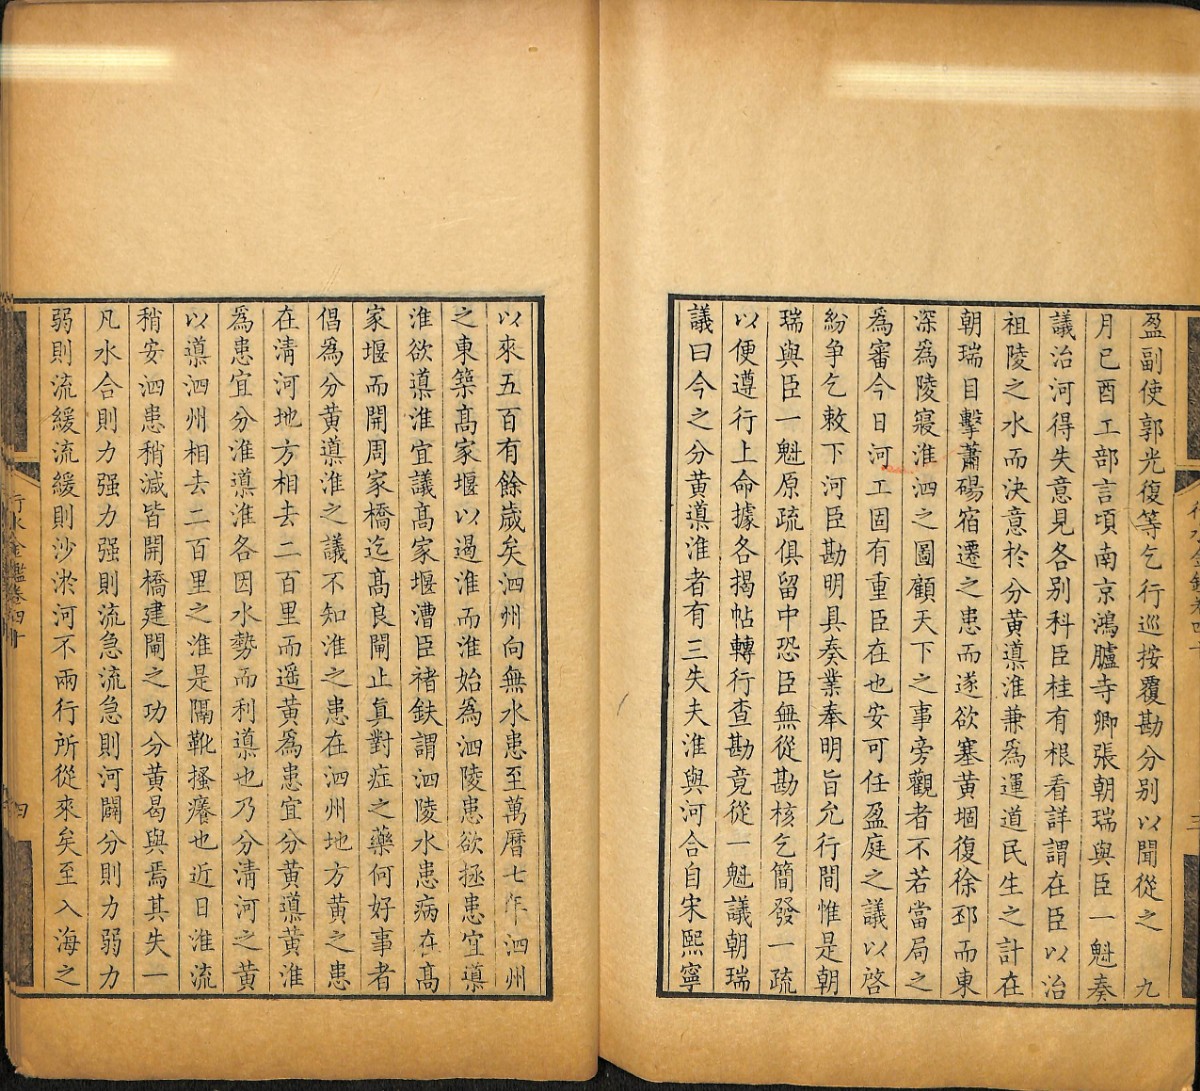 盈副使郭光復等乞行巡按覆勘分别以聞從之　九
月已酉工部言頃南京鴻臚寺卿張朝瑞與臣一魁奏
議治河得失意見各别科臣桂有根看詳謂在臣以治
祖陵之水而決意於分黄導淮兼為運道民生之計在
朝瑞目擊蕭碭宿遷之患而遂欲塞黄堌復徐邳而東
深為陵寢淮泗之圖顧天下之事旁觀者不若當局之
為審今日河工固有重臣在也安可任盈庭之議以啓
紛争乞敕下河臣勘明具奏業奉明旨允行間惟是朝
瑞與臣一魁原疏俱留中恐臣無從勘核乞簡發一疏
以便遵行上命據各揭帖轉行查勘竟從一魁議朝瑞
議曰今之分黄導淮者有三失夫淮與河合自宋熙寧
以來五百有餘歲矣泗州向無水患至萬曆七年泗州
之東築高家堰以遏淮而淮始為泗陵患欲拯患宜導
淮欲導淮宜議高家堰漕臣褚鈇謂泗陵水患病在高
家堰而開周家橋迄高良閘止真對症之藥何好事者
倡為分黄導淮之議不知淮之患在泗州地方黄之患
在清河地方相去二百里而遥黄為患宜分黄導黄淮
為患宜分淮導淮各因水勢而利導也乃分清河之黄
以導泗州相去二百里之淮是隔靴搔癢也近日淮流
稍安泗患稍減皆開橋建閘之功分黄曷與焉其失一
凡水合則力强力强則流急流急則河闢分則力弱力
弱則流緩流緩則沙淤河不兩行所從來矣至入海之
行水金鑑卷四十
四